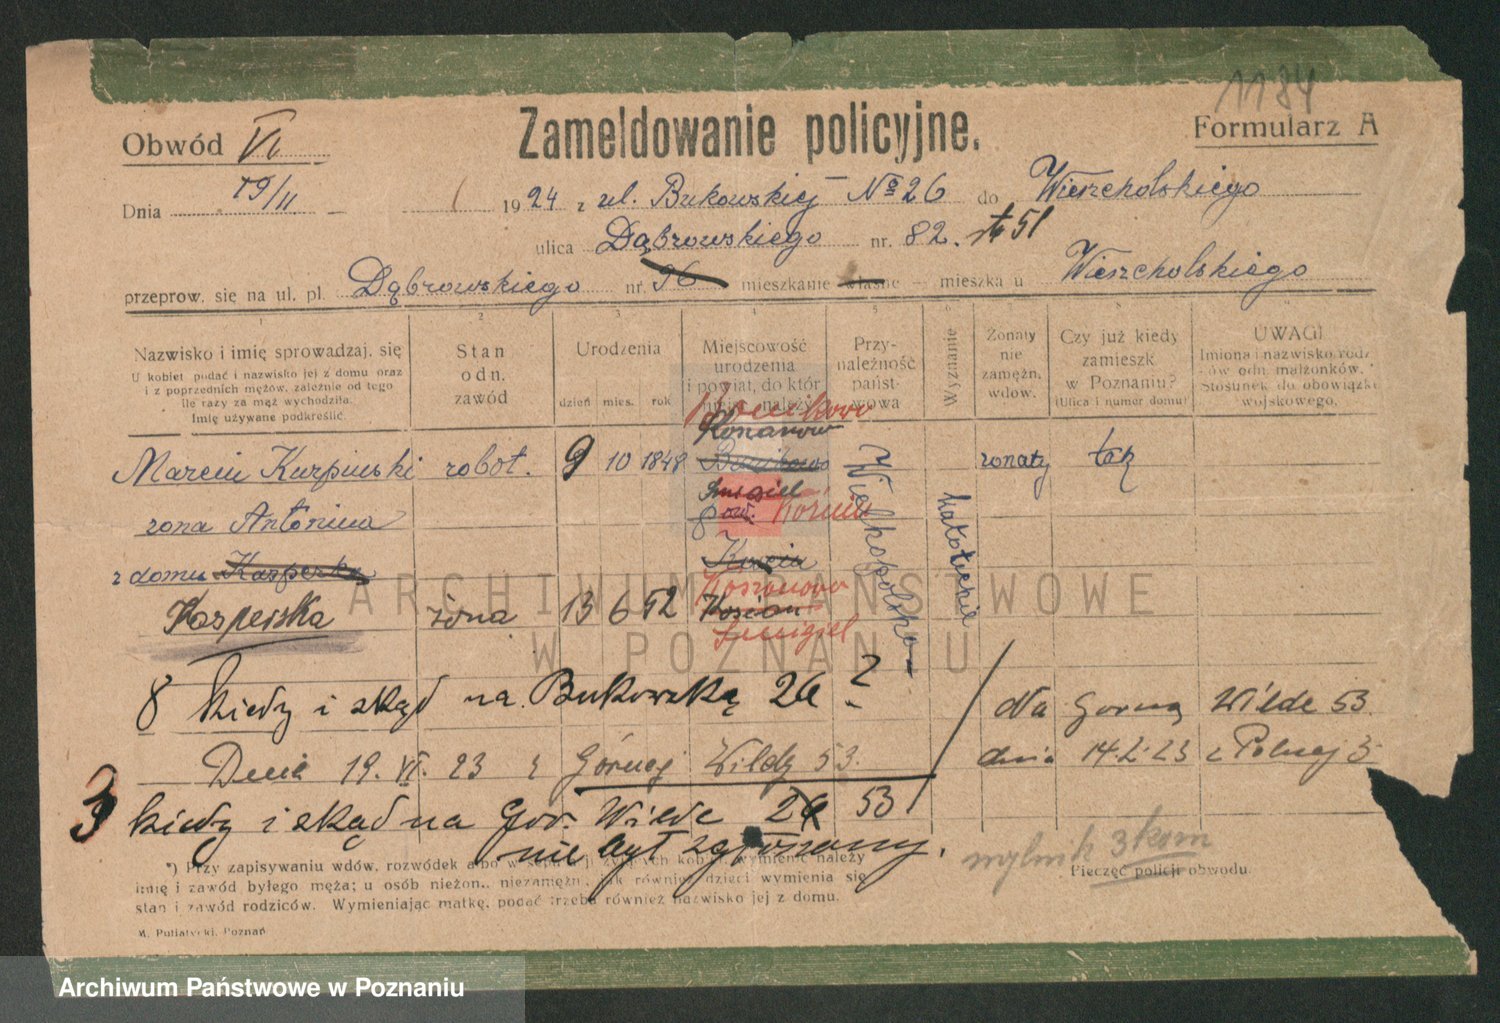 1184
Zameldowanie policyjne.
Obwód VI
Formularz A
Dnia 19/II 1924 z ul. Bukowskiej № 26 do Wierzcholskiego
ulica Dąbrowskiego nr. 82. 51
przeprow. się na ul. pl. Dąbrowskiego nr. 96 mieszkanie własne mieszka u Wierzcholskiego
1 2 3 4 5 6 7 8 9
Nazwisko i imię sprowadzaj. się
U kobiet podać i nazwisko jej z domu oraz
i z poprzednich mężów, zależnie od tego
ile razy za mąż wychodziła.
Imię używane podkreślić.
Stan
odn.
zawód
Urodzenia
dzień mies. rok
Miejscowość
urodzenia
i powiat, do któr
Przy-
należność
państ-
wowa
Wyznanie
Żonaty
nie
zamężn.
wdow.
Czy już kiedy
zamieszk.
w Poznaniu?
(Ulica i numer domu)
UWAGI
Imiona i nazwisko rodz
ów odn. małżonków.
Stosunek do obowiązku
wojskowego.
Marcin Kurpiński robot. 9 10 1848 żonaty tak
Śmigiel
żona Antonina pow.
z domu
Kasperska żona 13 6 52 Kościan
Śmigiel
Wielkopolska
katolickie
8 kiedy i skąd na Bukowską 26 ? / Na Górną Wildę 53
Dnia 19. VI. 23 z Górnej Wildy 53. dnia 14.2.23 z Polnej 3
3 kiedy i skąd na Gór. Wildę 53
nie był zgłoszony.
3 kom
*) Przy zapisywaniu wdów, rozwódek albo w separacji żyjących kobiet wymienić należy
imię i zawód byłego męża; u osób nieżon., niezamężn., jak również dzieci wymienia się
stan i zawód rodziców. Wymieniając matkę, podać trzeba również nazwisko jej z domu.
Pieczęć policji obwodu.
M. Putiatycki, Poznań
ARCHIWUM PAŃSTWOWE
W POZNANIU
Archiwum Państwowe w Poznaniu